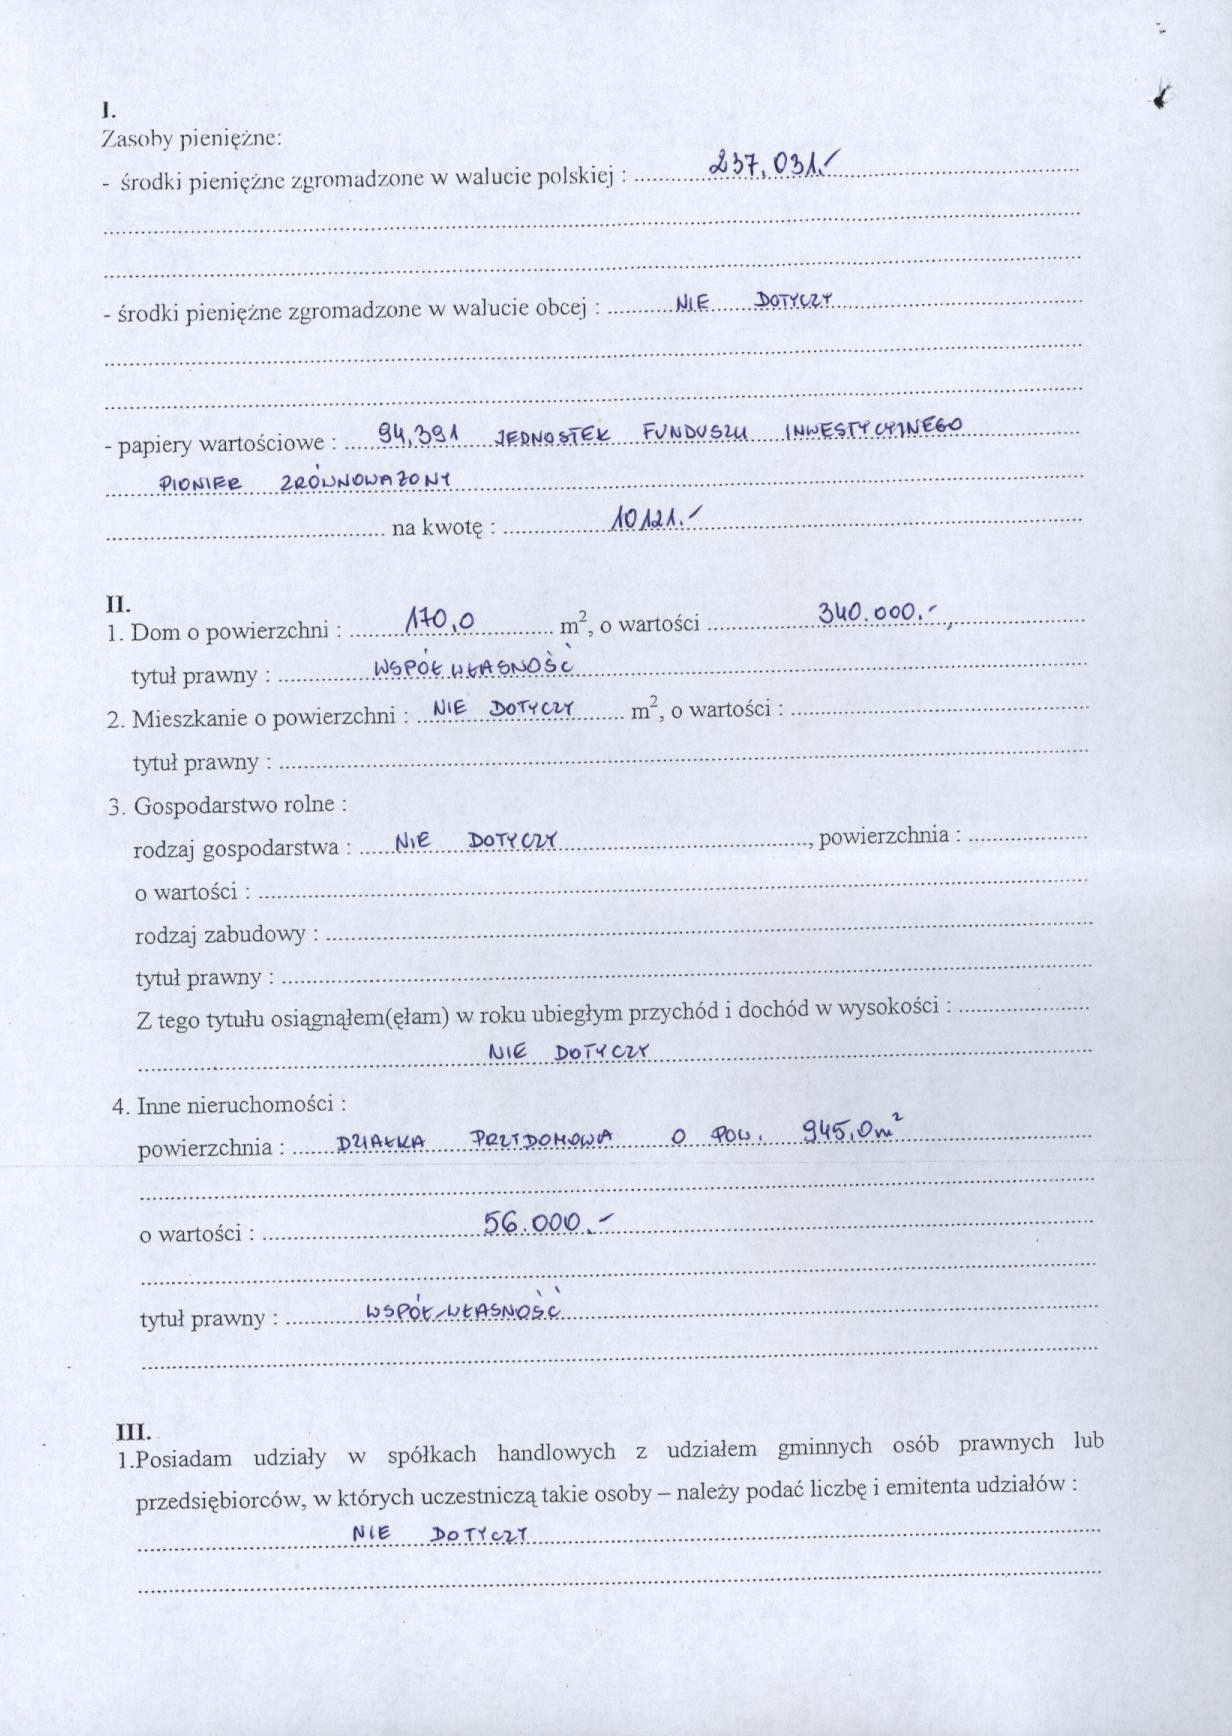 I.
Zasoby pieniężne:
- środki pieniężne zgromadzone w walucie polskiej : 237.031.-
- środki pieniężne zgromadzone w walucie obcej : NIE DOTYCZY
- papiery wartościowe : 94,391 JEDNOSTEK FUNDUSZU INWESTYCYJNEGO
PIONIER ZRÓWNOWAŻONY
na kwotę : 10121.-
II.
1. Dom o powierzchni : 170,0 m², o wartości 340.000.-,
tytuł prawny : WSPÓŁWŁASNOŚĆ
2. Mieszkanie o powierzchni : NIE DOTYCZY m², o wartości :
tytuł prawny :
3. Gospodarstwo rolne :
rodzaj gospodarstwa : NIE DOTYCZY, powierzchnia :
o wartości :
rodzaj zabudowy :
tytuł prawny :
Z tego tytułu osiągnąłem(ęłam) w roku ubiegłym przychód i dochód w wysokości :
NIE DOTYCZY
4. Inne nieruchomości :
powierzchnia : DZIAŁKA PRZYDOMOWA O POW. 945,0m²
o wartości : 56.000.-
tytuł prawny : WSPÓŁ-WŁASNOŚĆ
III.
1.Posiadam udziały w spółkach handlowych z udziałem gminnych osób prawnych lub
przedsiębiorców, w których uczestniczą takie osoby – należy podać liczbę i emitenta udziałów :
NIE DOTYCZY